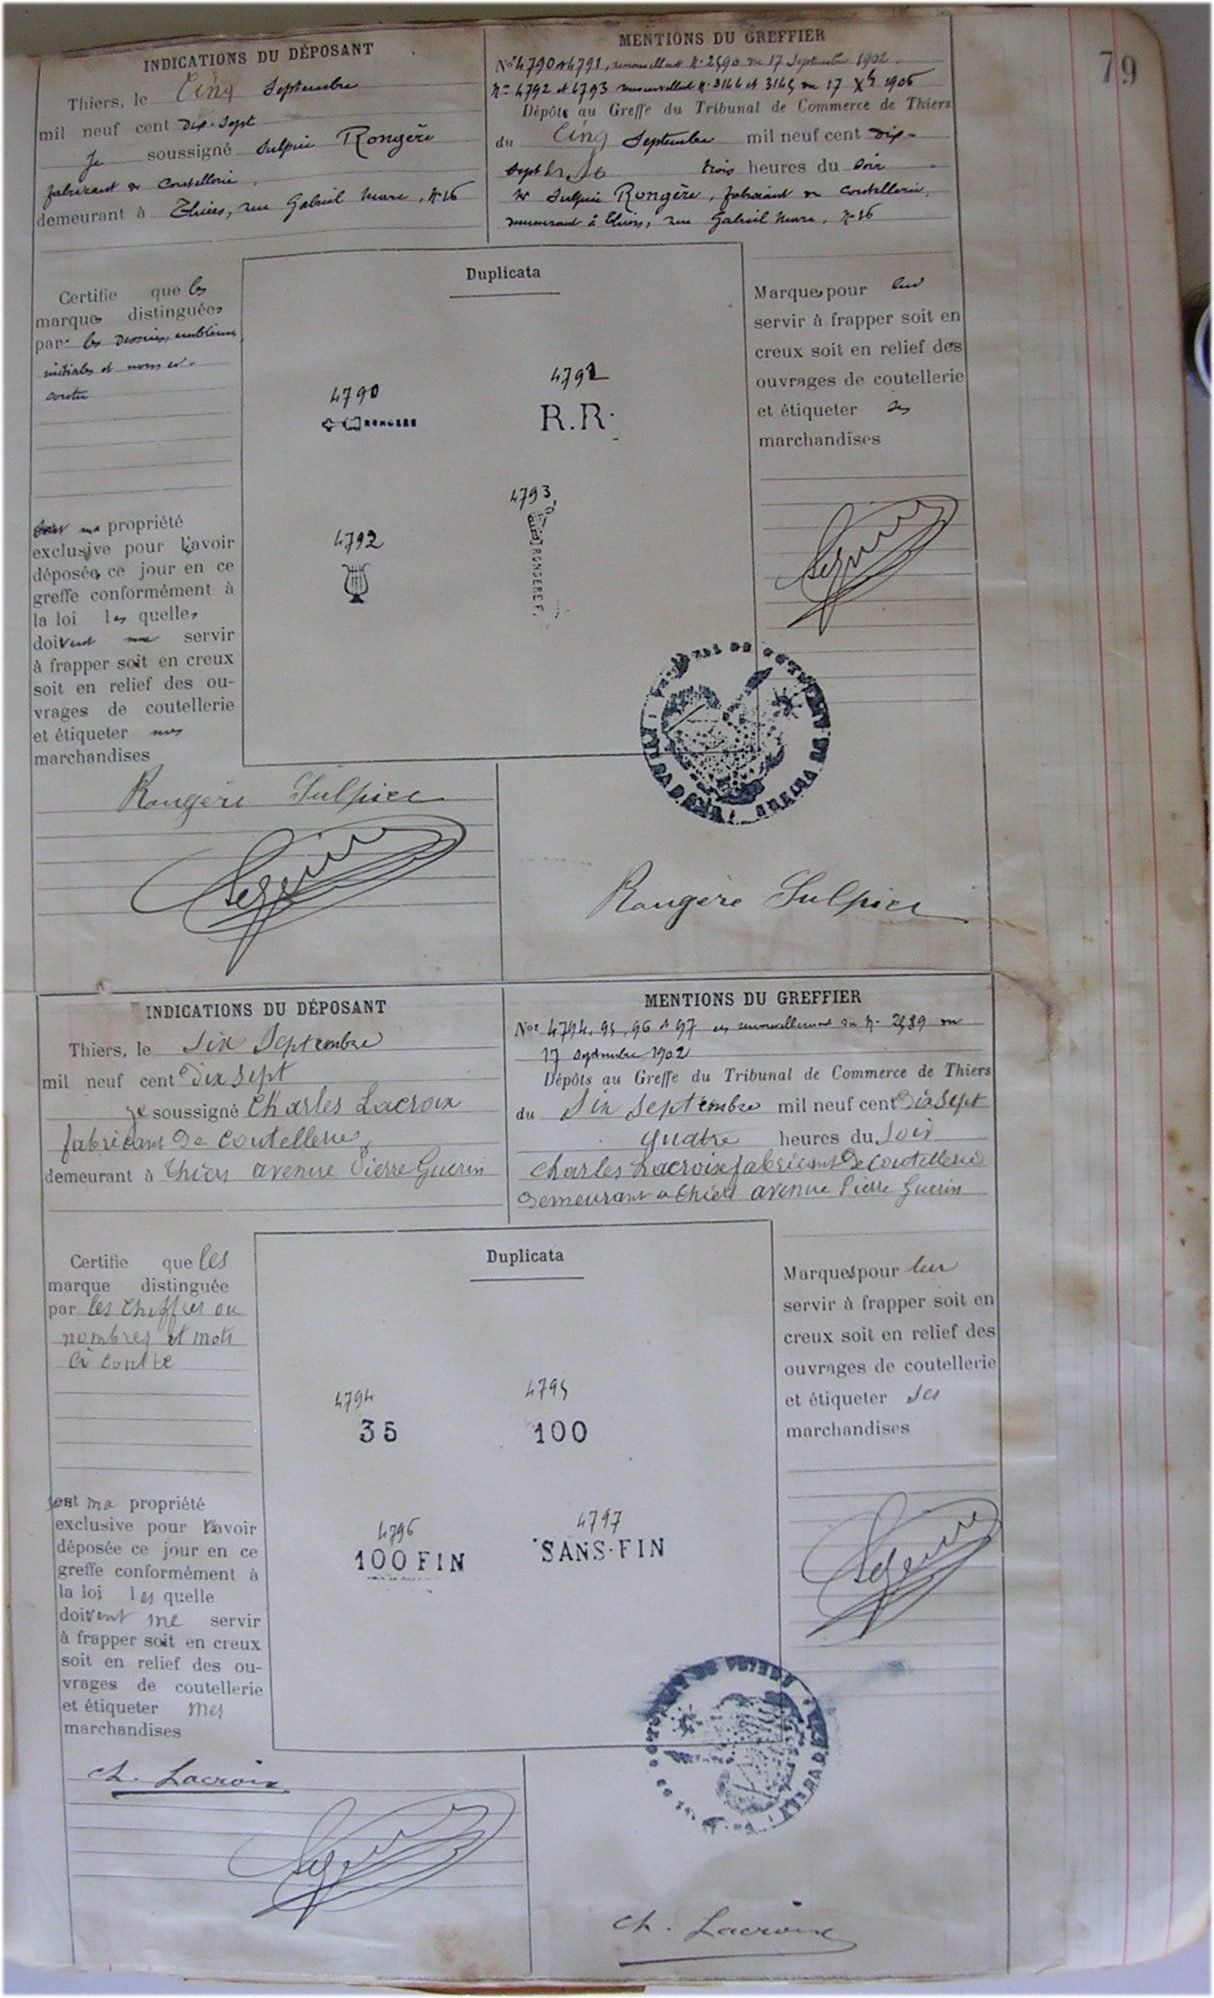 79
INDICATIONS DU DÉPOSANT
Thiers, le Cinq Septembre
mil neuf cent Dix-Sept
Je soussigné Sulpice Rongère
fabricant de Coutellerie,
demeurant à Thiers, rue Gabriel Marc, N° 16
MENTIONS DU GREFFIER
Nos 4790 et 4791, renouvellent N° 2590 du 17 Septembre 1902.
Nos 4792 et 4793 renouvellent N° 3144 et 3145 du 17 Xbre 1906
Dépôts au Greffe du Tribunal de Commerce de Thiers
du Cinq Septembre mil neuf cent dix-
sept trois heures du soir
Mr Sulpice Rongère, fabricant de coutellerie,
demeurant à Thiers, rue Gabriel Marc, N° 16
Certifie que les
marques distinguées
par les dessins, emblème,
initiales et noms ci-
contre
sont ma propriété
exclusive pour l'avoir
déposées ce jour en ce
greffe conformément à
la loi les quelles
doivent me servir
à frapper soit en creux
soit en relief des ou-
vrages de coutellerie
et étiqueter mes
marchandises
Duplicata
4790
RONGERE
4791
R.R.
4792
4793
RONGERE F.
Marques pour lui
servir à frapper soit en
creux soit en relief des
ouvrages de coutellerie
et étiqueter ses
marchandises
Rongère Sulpice
Rongère Sulpice
INDICATIONS DU DÉPOSANT
Thiers, le Six Septembre
mil neuf cent Dix sept
Je soussigné Charles Lacroix
fabricant de Coutellerie,
demeurant à Thiers avenue Pierre Guerin
MENTIONS DU GREFFIER
Nos 4794, 95, 96 et 97 en renouvellement du N° 2589 du
17 Septembre 1902
Dépôts au Greffe du Tribunal de Commerce de Thiers
du Six Septembre mil neuf cent Dix Sept
quatre heures du Soir
Charles Lacroix fabricant de Coutellerie
demeurant a Thiers avenue Pierre Guerin
Certifie que les
marque distinguée
par les chiffres ou
nombres et mots
ci contre
sont ma propriété
exclusive pour l'avoir
déposée ce jour en ce
greffe conformément à
la loi les quelle
doivent me servir
à frapper soit en creux
soit en relief des ou-
vrages de coutellerie
et étiqueter mes
marchandises
Duplicata
4794
35
4795
100
4796
100 FIN
4797
SANS-FIN
Marques pour lui
servir à frapper soit en
creux soit en relief des
ouvrages de coutellerie
et étiqueter ses
marchandises
Ch. Lacroix
Ch. Lacroix